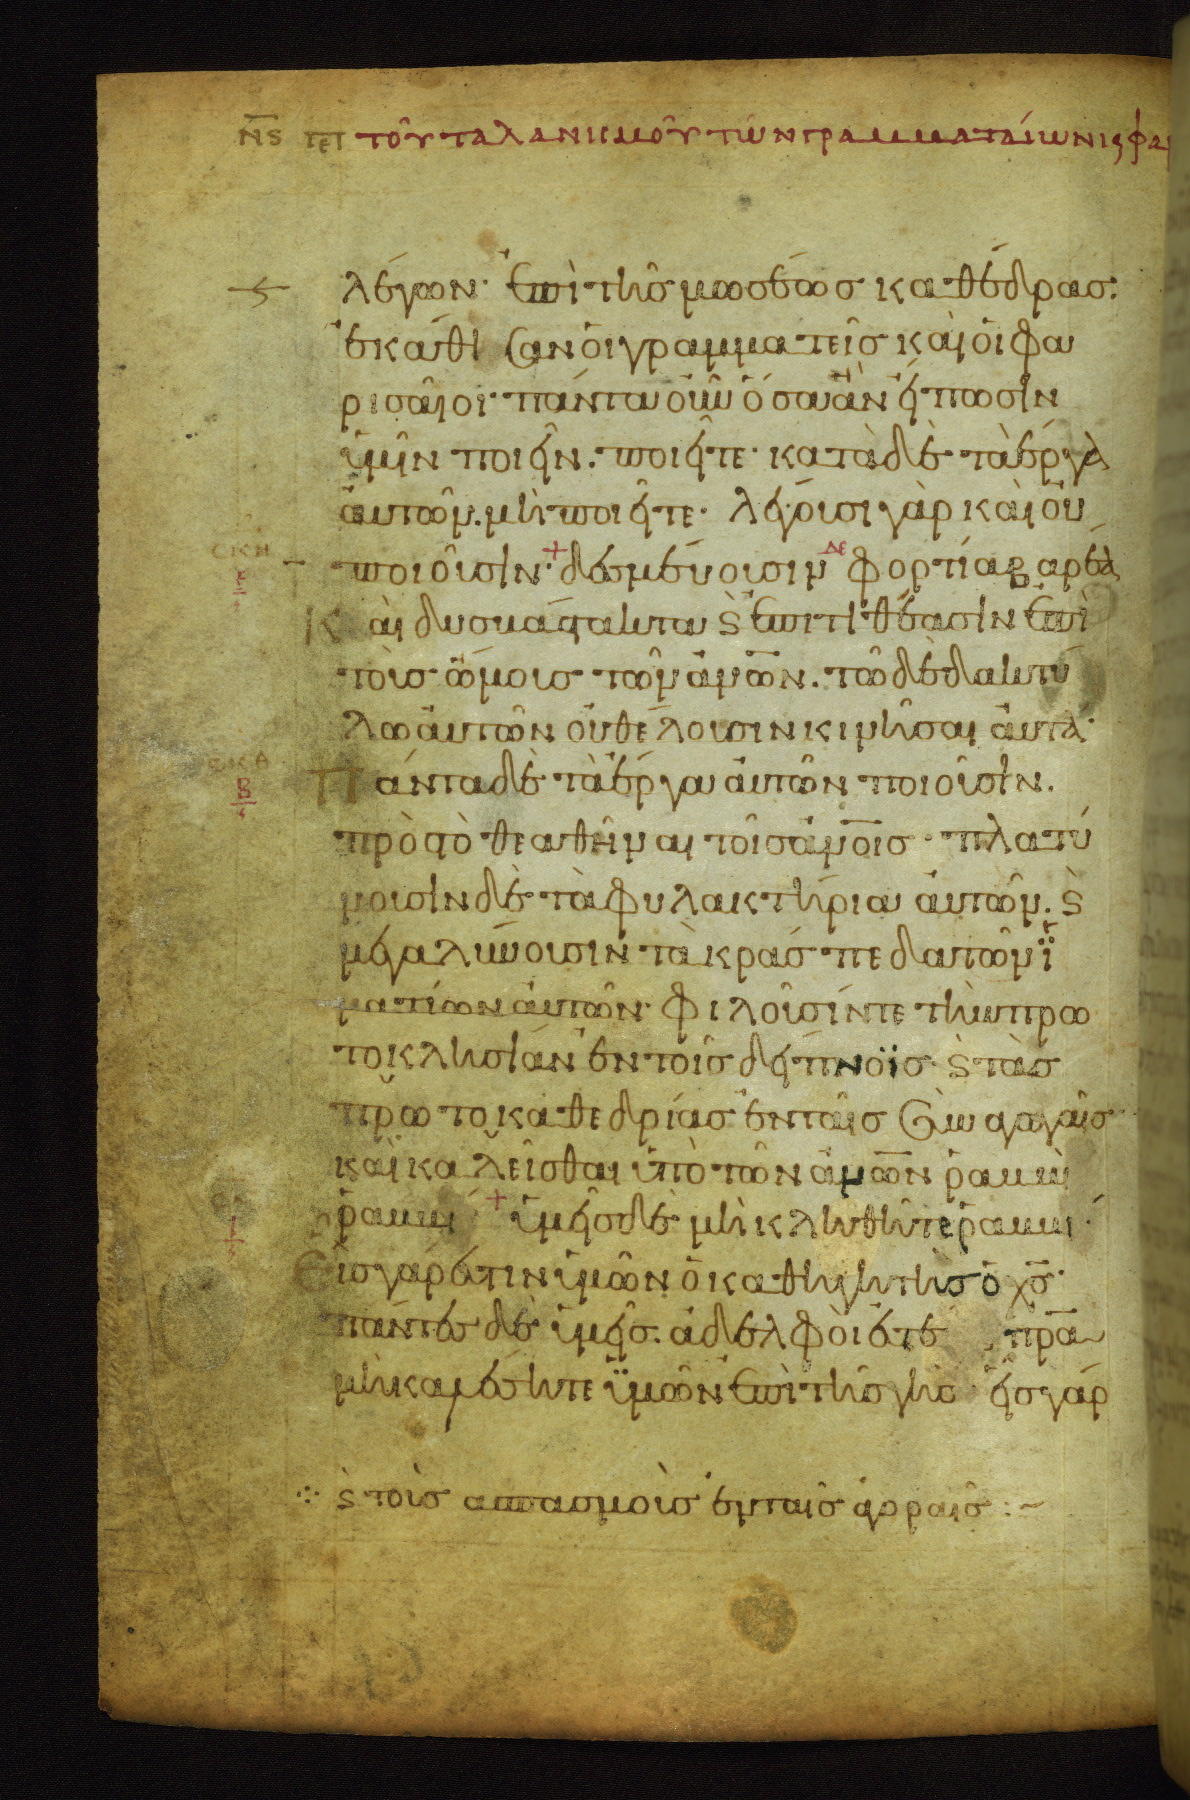 ν̅ς πε̅ι τοῦ ταλανισμοῦ τῶν γραμματαίων κς φαρ
λέγων· ἐπὶ τῆς μωσέως καθέδρας·
ἐκάθισαν οἱ γραμματεῖς καὶ οἱ φα
ρισαῖοι· πάντα οὖν ὅσα ἂν εἴπωσιν
ὑμῖν ποιεῖν. ποιεῖτε· κατὰ δὲ τὰ ἔργα
αὐτῶν. μὴ ποιεῖτε· λέγουσι γὰρ καὶ οὐ
σκη
ε
ποιοῦσιν· + δεσμεύουσιν δε φορτία βαρέα
Καὶ δυσβάστακτα ς̀ ἐπιτιθέασιν ἐπὶ
τοὺς ὤμους τῶν ἀν̅ω̅ν. τῶ δὲ δακτύ
λω αὐτῶν οὐ θέλουσιν κινῆσαι αὐτά·
σκθ
β
Πάντα δὲ τὰ ἔργα αὐτῶν ποιοῦσιν.
πρὸς τὸ θεαθῆναι τοῖς ἀν̅ο̅ις· πλατύ
νουσιν δὲ τὰ φυλακτήρια αὐτῶν. ς̀
μεγαλύνουσιν τὰ κράσπεδα τῶν ϊ
ματίων αὐτῶν· φιλοῦσίν τε τὴν πρω
τοκλησίαν ἐν τοῖς δείπνοις· ς̀ τὰς
πρωτοκαθεδρίας ἐν ταῖς συναγωγαῖς·
καὶ καλεῖσθαι ὑπὸ τῶν ἀν̅ω̅ν ῥαββὶ
σλ
ῥαββί + ὑμεῖς δὲ μὴ κληθῆτε ῥαββί·
Εἷς γάρ ἐστιν ὑμῶν ὁ καθηγητὴς ὁ χ̅ς·
πάντες δὲ ὑμεῖς. ἀδελφοί ἐστε π̅ρ̅α
μὴ καλέσητε ὑμῶν ἐπὶ τῆς γῆς· εἷς γάρ
ς̀ τοὺς ἀσπασμοὺς ἐν ταῖς ἀγοραῖς :~